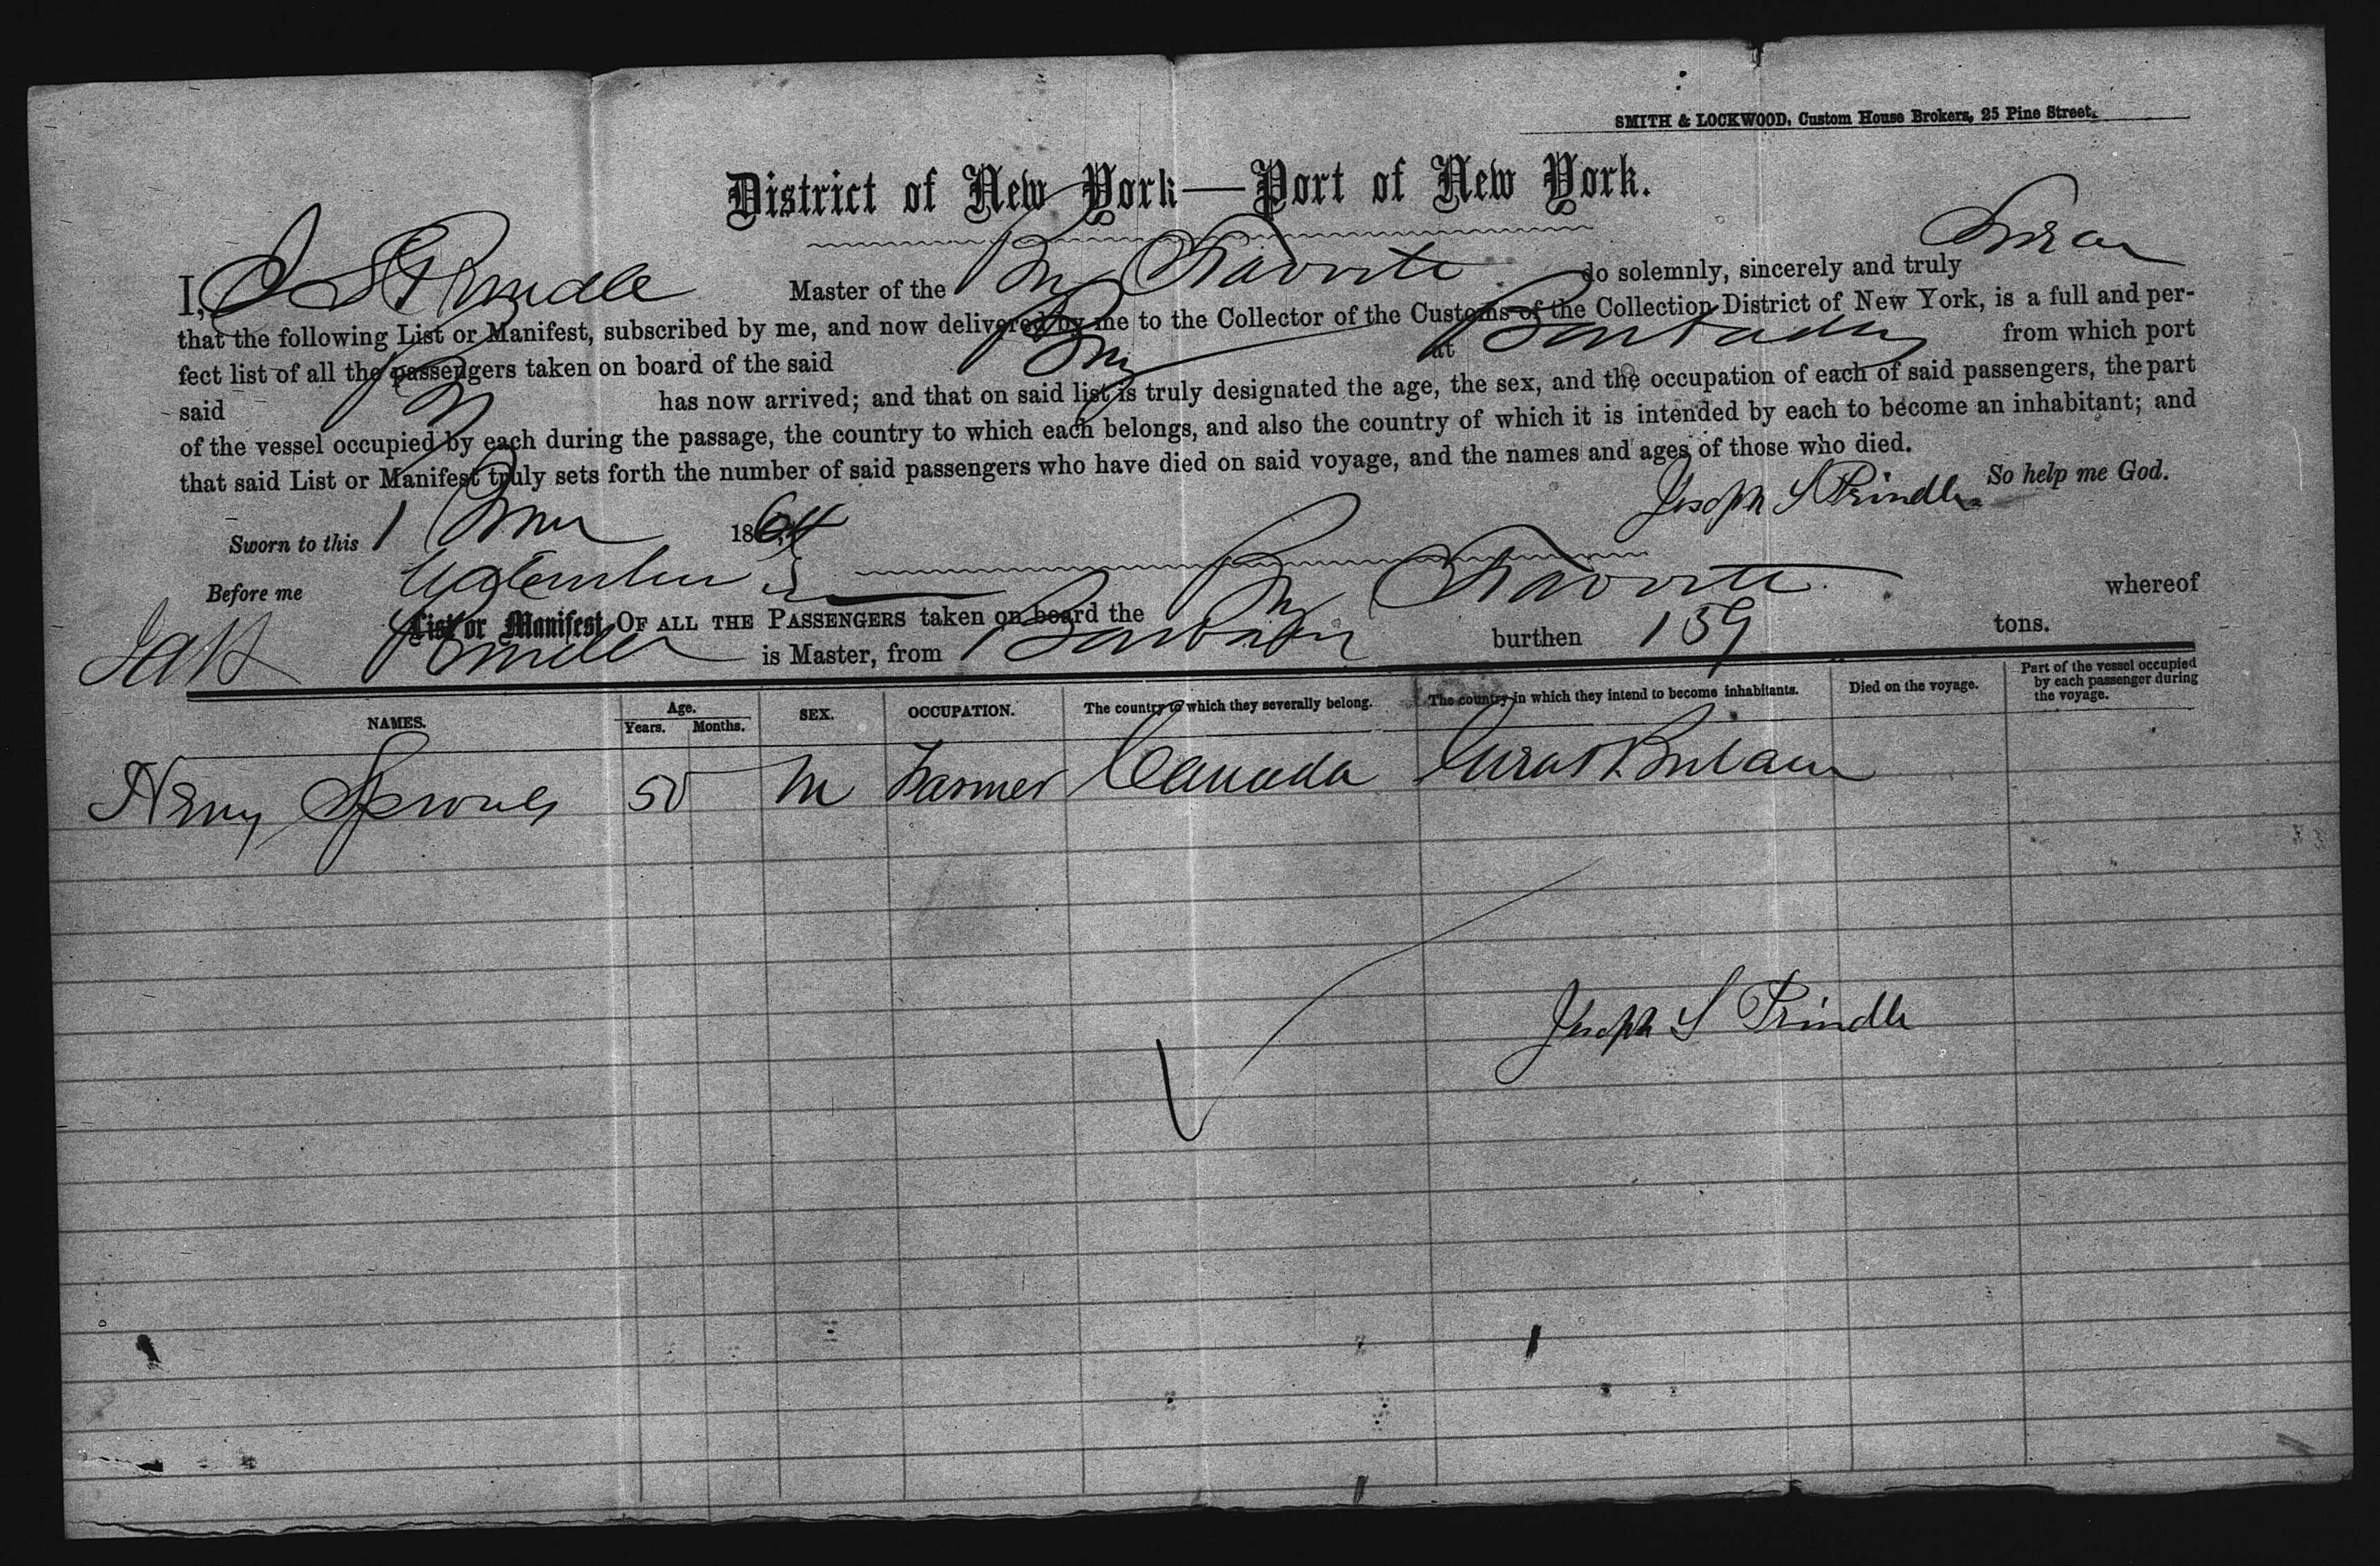 SMITH & LOCKWOOD, Custom House Brokers, 25 Pine Street.
District of New York—Port of New York.
I, J S Prindle Master of the Brig Favorite do solemnly, sincerely and truly Swear
that the following List or Manifest, subscribed by me, and now delivered by me to the Collector of the Customs of the Collection District of New York, is a full and per-
fect list of all the passengers taken on board of the said Brig at Barbados from which port
said Brig has now arrived; and that on said list is truly designated the age, the sex, and the occupation of each of said passengers, the part
of the vessel occupied by each during the passage, the country to which each belongs, and also the country of which it is intended by each to become an inhabitant; and
that said List or Manifest truly sets forth the number of said passengers who have died on said voyage, and the names and ages of those who died.
So help me God.
Joseph S Prindle
Sworn to this 1 1864
Before me
List or Manifest OF ALL THE PASSENGERS taken on board the Brig Favorite whereof
Prindle is Master, from burthen 159 tons.
NAMES. Age. Years. Months. SEX. OCCUPATION. The country to which they severally belong. The country in which they intend to become inhabitants. Died on the voyage. Part of the vessel occupied by each passenger during the voyage.
Henry 50 M Farmer Canada Great Britain
Joseph S Prindle